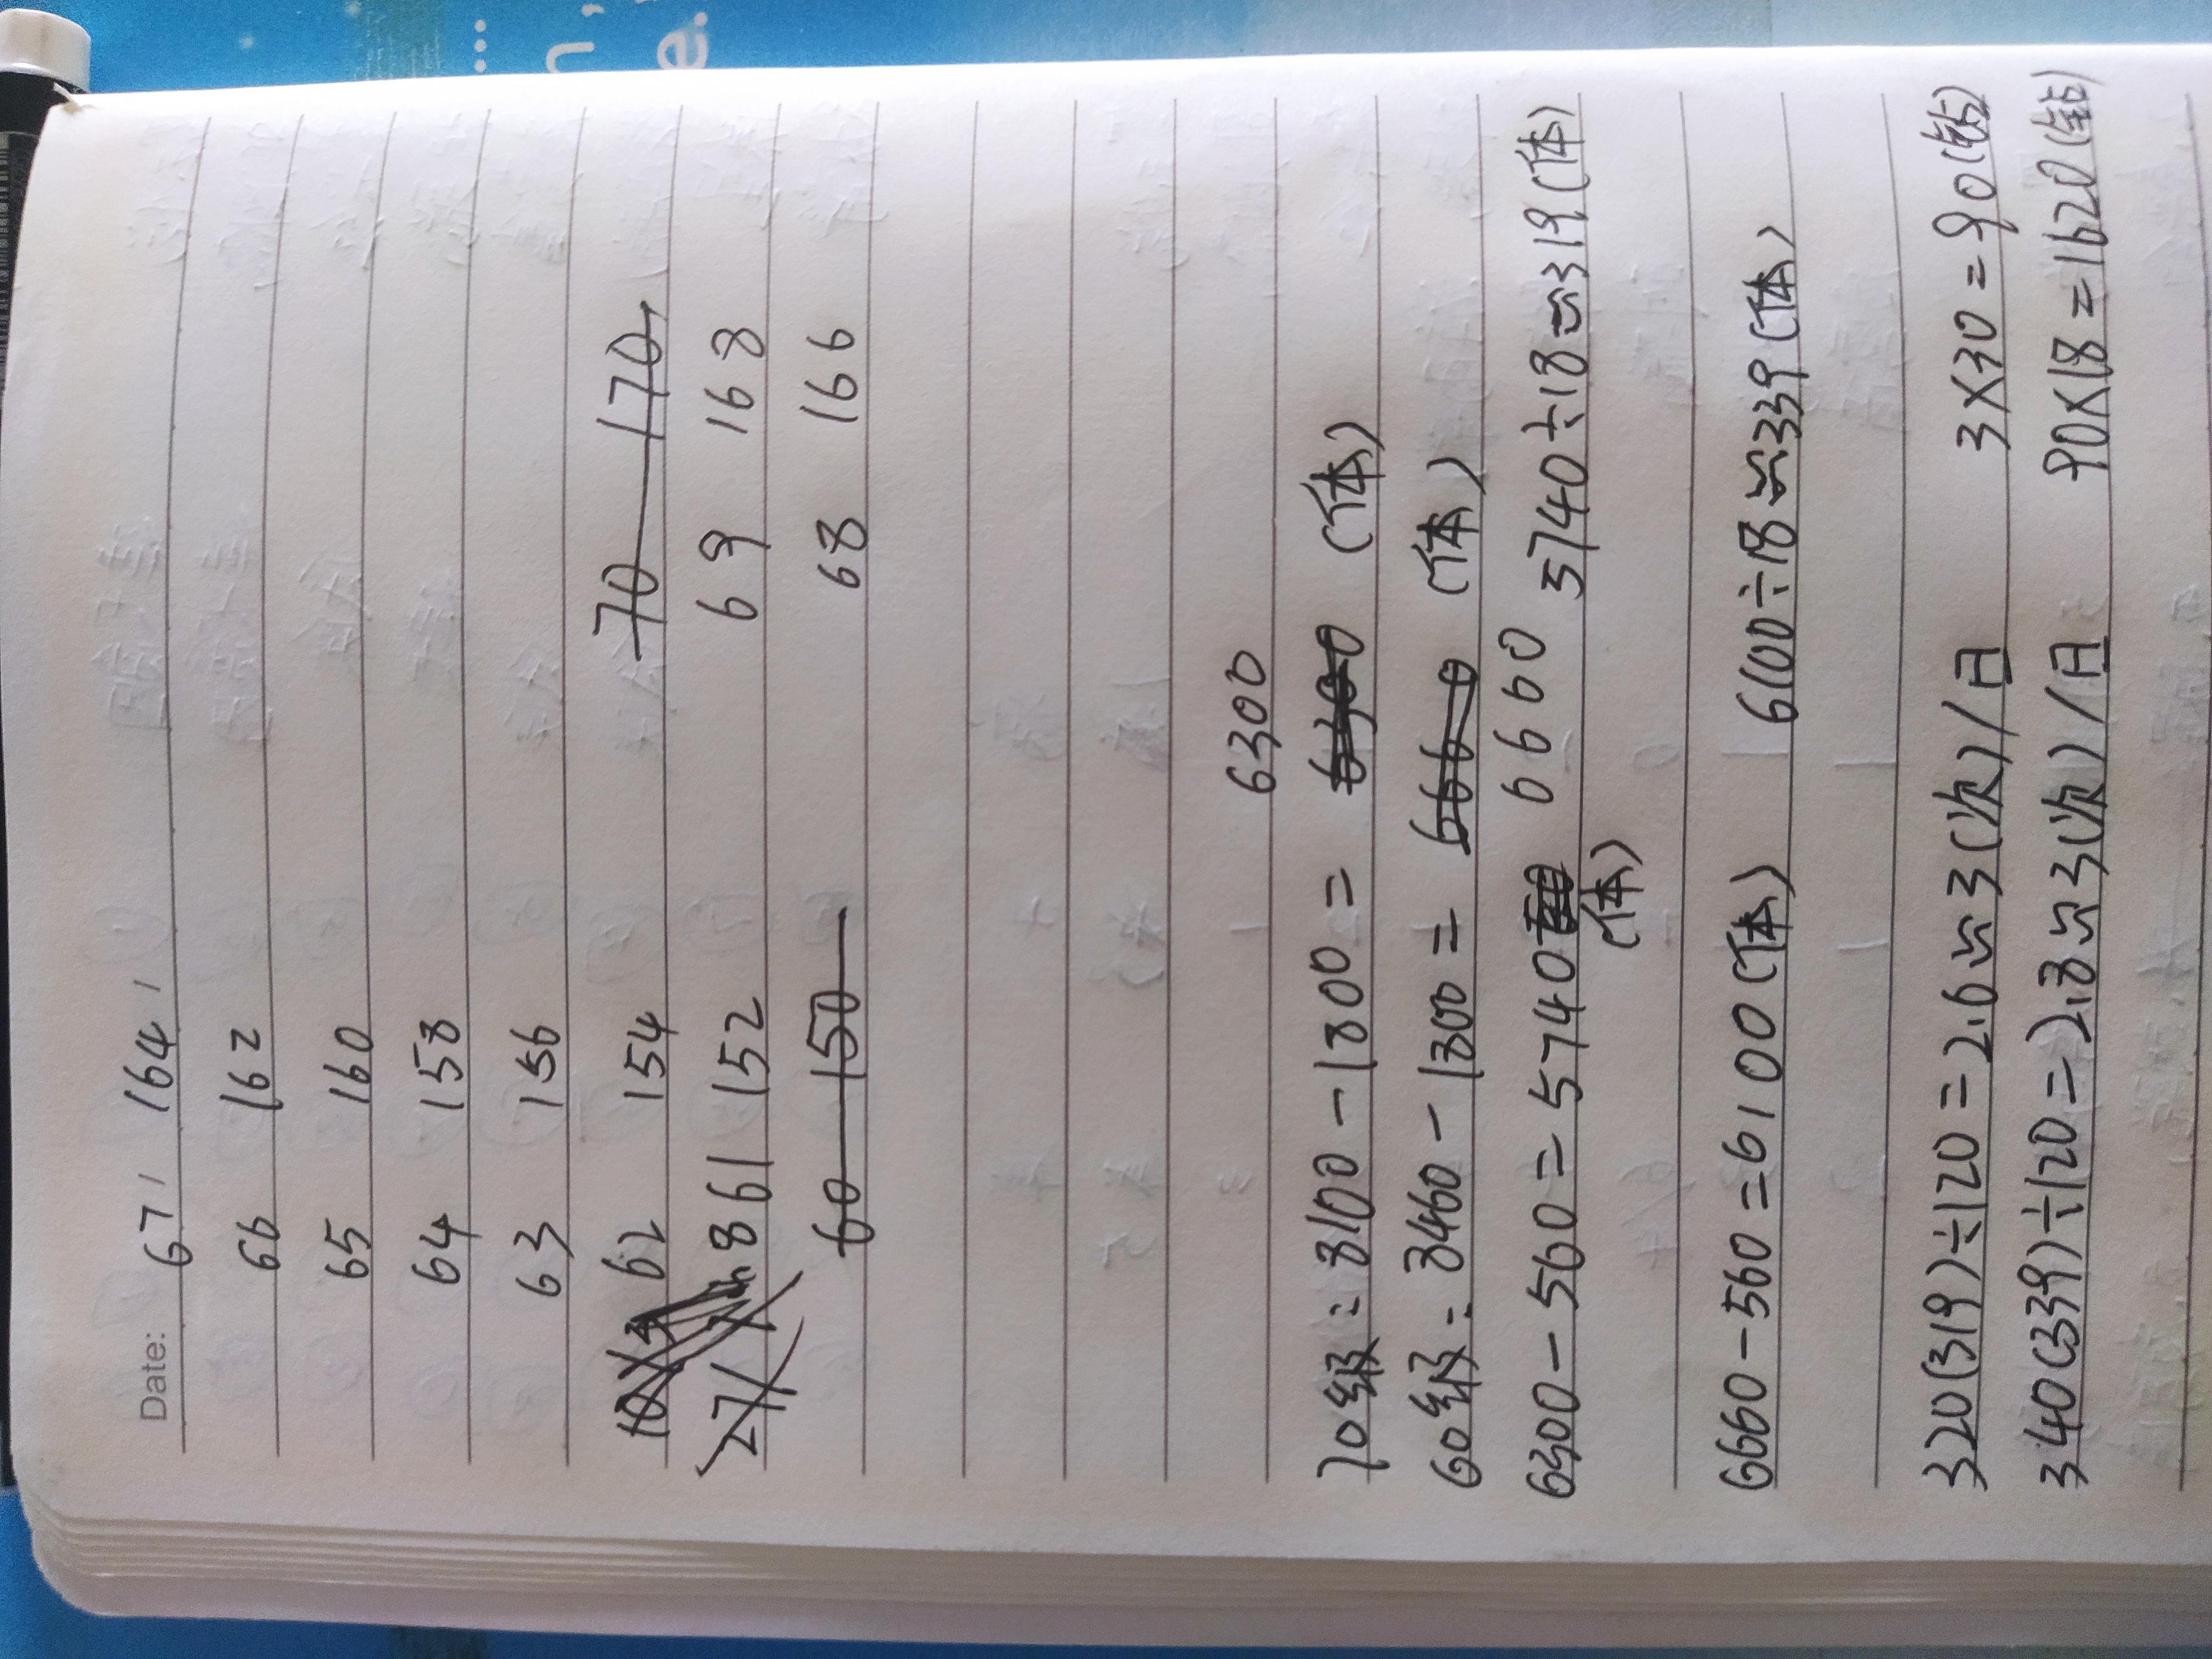 ...
n,
e.
Date:
67 164
66 162
65 160
64 158
63 156
62 154 70 170
8 61 152 69 168
60 150 68 166
6300
70级=8100-1800= 6300 (体)
60级=8460-1800= 6660 (体)
6300-560=5740 6660 5740÷18≈319(体)
(体)
6660-560=6100(体) 6100÷18≈339(体)
320(319)÷120=2.6≈3(次)/日 3×30=90(钻)
340(339)÷120=2.8≈3(次)/日 90×18=1620(钻)